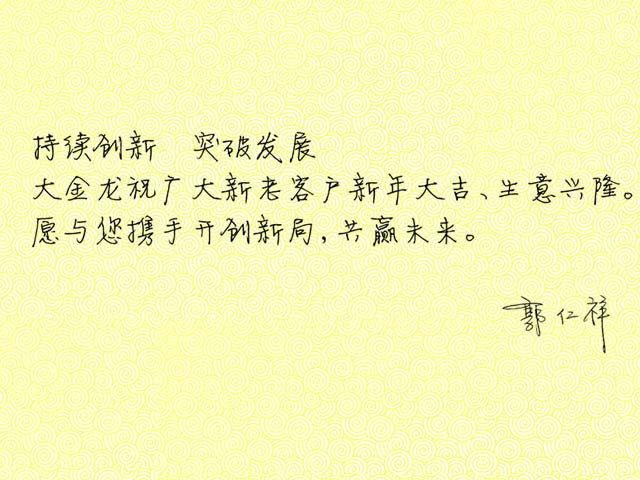 持续创新 突破发展
大金龙祝广大新老客户新年大吉、生意兴隆。
愿与您携手开创新局,共赢未来。
郭仁祥